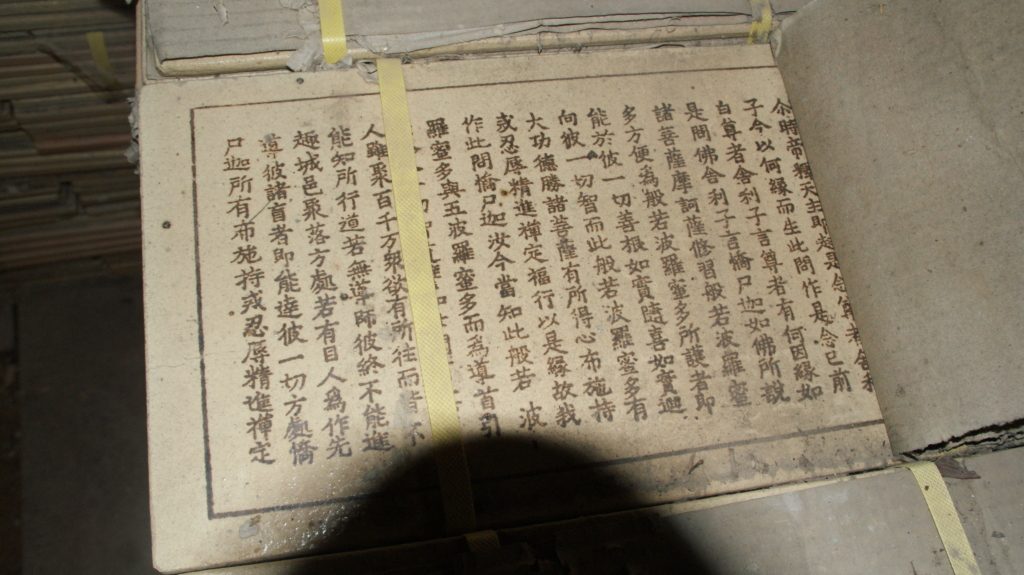 尒時帝釋天主即起是念尊者舍利
子今以何緣而生此問作是念已前
白尊者舍利子言尊者有何因緣如
是問佛舍利子言憍尸迦如佛所說
諸菩薩摩訶薩修習般若波羅蜜
多方便為般若波羅蜜多所護者即
能於彼一切善根如實隨喜如實迴
向彼一切智而此般若波羅蜜多有
大功德勝諸菩薩有所得心布施持
戒忍辱精進禪定福行以是緣故我
作此問憍尸迦汝今當知此般若波
羅蜜多與五波羅蜜多而為導首引
人雖聚百千万眾欲有所往而皆不
能知所行道若無導師彼終不能進
趣城邑聚落方處若有目人為作先
導彼諸盲者即能達彼一切方處憍
尸迦所有布施持戒忍辱精進禪定